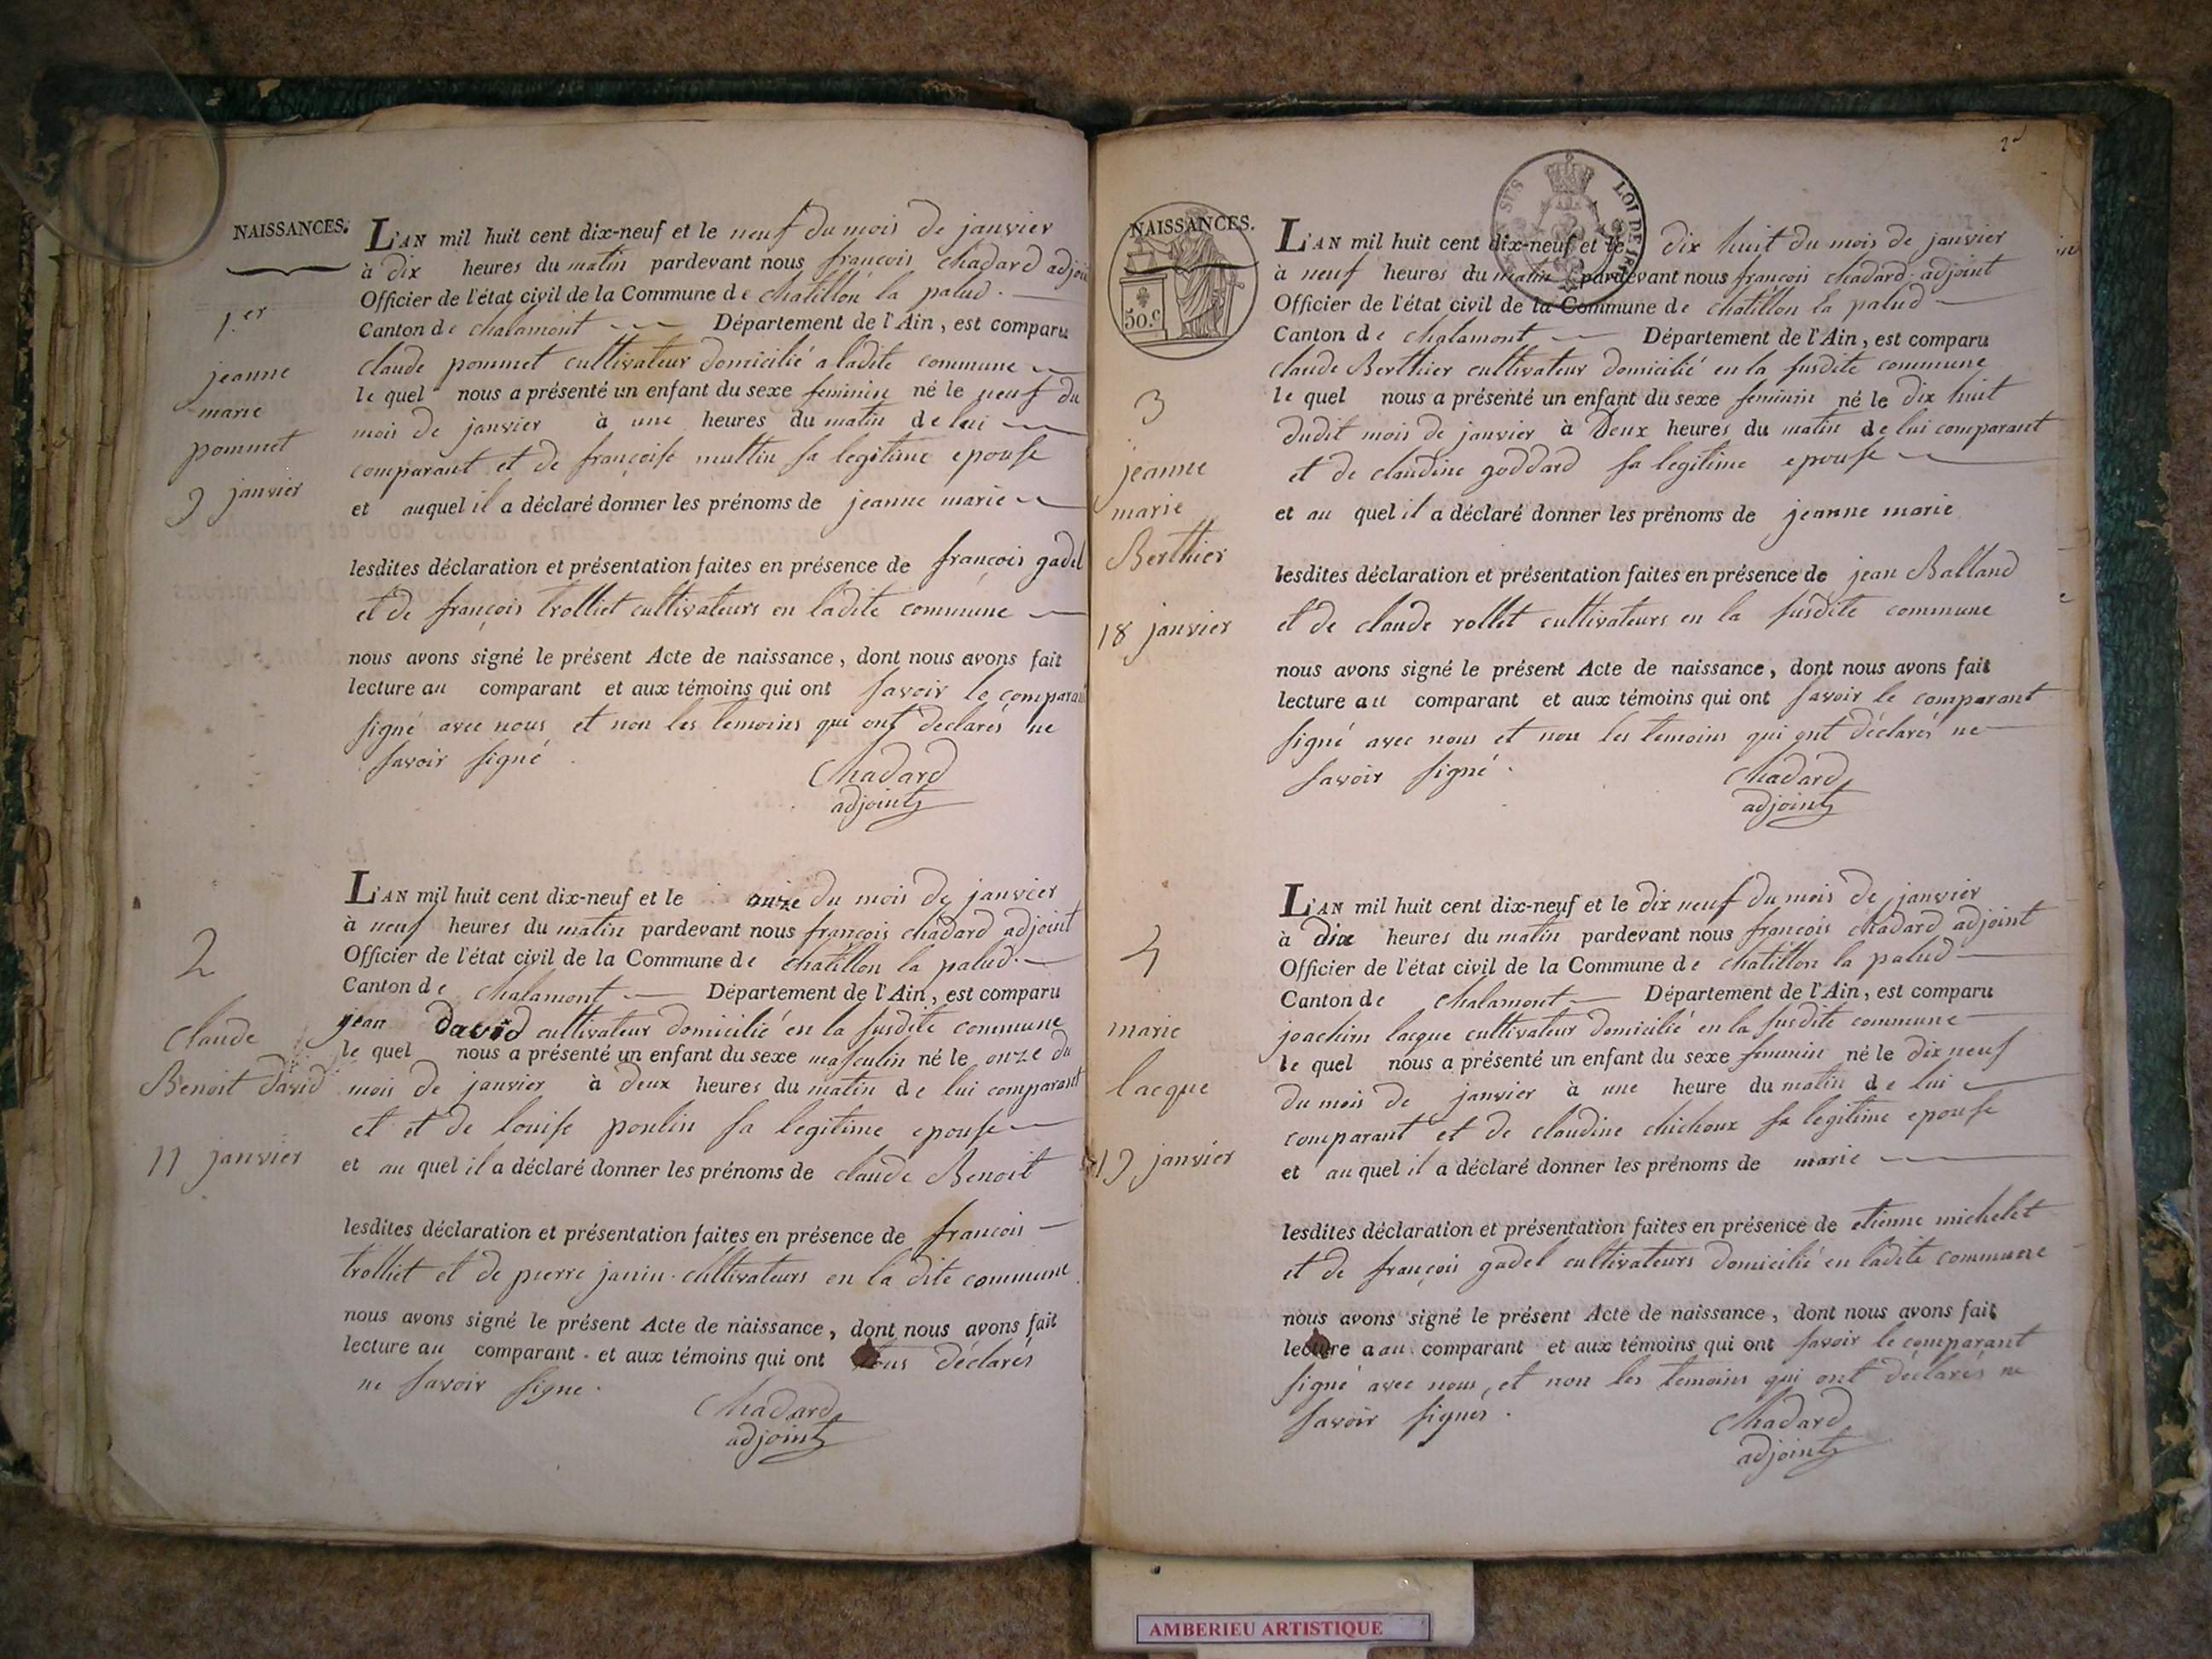 NAISSANCES.
1.er
jeanne
marie
pommet
9 janvier
L'AN mil huit cent dix-neuf et le neuf du mois de janvier
à dix heures du matin pardevant nous françois chadard adjoint
Officier de l'état civil de la Commune de chatillon la palud.
Canton de chalamont Département de l'Ain, est comparu
claude pommet cultivateur domicilié a ladite commune
le quel nous a présenté un enfant du sexe feminin né le neuf du
mois de janvier à une heures du matin de lui
comparant et de françoise muttin sa legitime epouse
et auquel il a déclaré donner les prénoms de jeanne marie
lesdites déclaration et présentation faites en présence de françois gadel
et de françois trolliet cultivateurs en ladite commune
nous avons signé le présent Acte de naissance, dont nous avons fait
lecture au comparant et aux témoins qui ont savoir le comparant
signé avec nous et non les temoins qui ont declarés ne
savoir signé
Chadard
adjoint
2
claude
Benoit david
11 janvier
L'AN mil huit cent dix-neuf et le onze du mois de janvier
à neuf heures du matin pardevant nous françois chadard adjoint
Officier de l'état civil de la Commune de chatillon la palud.
Canton de chalamont Département de l'Ain, est comparu
jean david cultivateur domicilié en la susdite commune
le quel nous a présenté un enfant du sexe masculin né le onze du
mois de janvier à deux heures du matin de lui comparant
et et de louise poulin sa legitime epouse
et au quel il a déclaré donner les prénoms de claude Benoit
lesdites déclaration et présentation faites en présence de francois
trolliet et de pierre janin cultivateurs en la dite commune
nous avons signé le présent Acte de naissance, dont nous avons fait
lecture au comparant. et aux témoins qui ont tous déclarés
ne savoir signe.
Chadard
adjoint
2d
SUS LOI DE
NAISSANCES.
50.c
3
jeanne
marie
Berthier
18 janvier
L'AN mil huit cent dix-neuf et le dix huit du mois de janvier
à neuf heures du matin pardevant nous françois chadard adjoint
Officier de l'état civil de la Commune de chatillon la palud
Canton de chalamont Département de l'Ain, est comparu
claude Berthier cultivateur domicilié en la susdite commune
le quel nous a présenté un enfant du sexe feminin né le dix huit
dudit mois de janvier à Deux heures du matin de lui comparant
et de claudine goddard sa legitime epouse
et au quel il a déclaré donner les prénoms de jeanne marie
lesdites déclaration et présentation faites en présence de jean Balland
et de claude rollet cultivateurs en la susdite commune
nous avons signé le présent Acte de naissance, dont nous avons fait
lecture au comparant et aux témoins qui ont savoir le comparant
signé avec nous et non les temoins qui ont déclarés ne
savoir signé.
Chadard
adjoint
4
marie
lacque
19 janvier
L'AN mil huit cent dix-neuf et le dix neuf du mois de janvier
à dix heures du matin pardevant nous françois chadard adjoint
Officier de l'état civil de la Commune de chatillon la palud
Canton de chalamont Département de l'Ain, est comparu
joachim lacque cultivateur domicilié en la susdite commune
le quel nous a présenté un enfant du sexe feminin né le dix neuf
du mois de janvier à une heure du matin de lui
comparant et de claudine chichoux sa legitime epouse
et au quel il a déclaré donner les prénoms de marie
lesdites déclaration et présentation faites en présence de etienne michelet
et de françois gadel cultivateurs domicilié en ladite commune
nous avons signé le présent Acte de naissance, dont nous avons fait
lecture a au comparant et aux témoins qui ont savoir le comparant
signé avec nous, et non les temoins qui ont déclarés ne
savoir signer.
Chadard
adjoint
AMBERIEU ARTISTIQUE